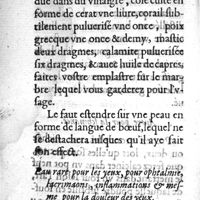 due dans du vinaigre, cole cuite en
forme de cerat vne liure, coral sub-
tilement pulueriſé vne once, poix
grecque vne once & demy, maſtic
deux dragmes, calamite pulueriſée
ſix dragmes, & auec huile de capres,
faites voſtre emplaſtre ſur le mar-
bre lequel vous garderez pour l'v-
ſage.
Le faut eſtendre ſur vne peau en
forme de langue de bœuf, lequel ne
ſe deſtachera niſques qu'il aye fait
ſon effect.
Eau rare pour les yeux, pour optalmie,
lacrimaons, inflammations & meſ-
me pour la douleur des yeux.